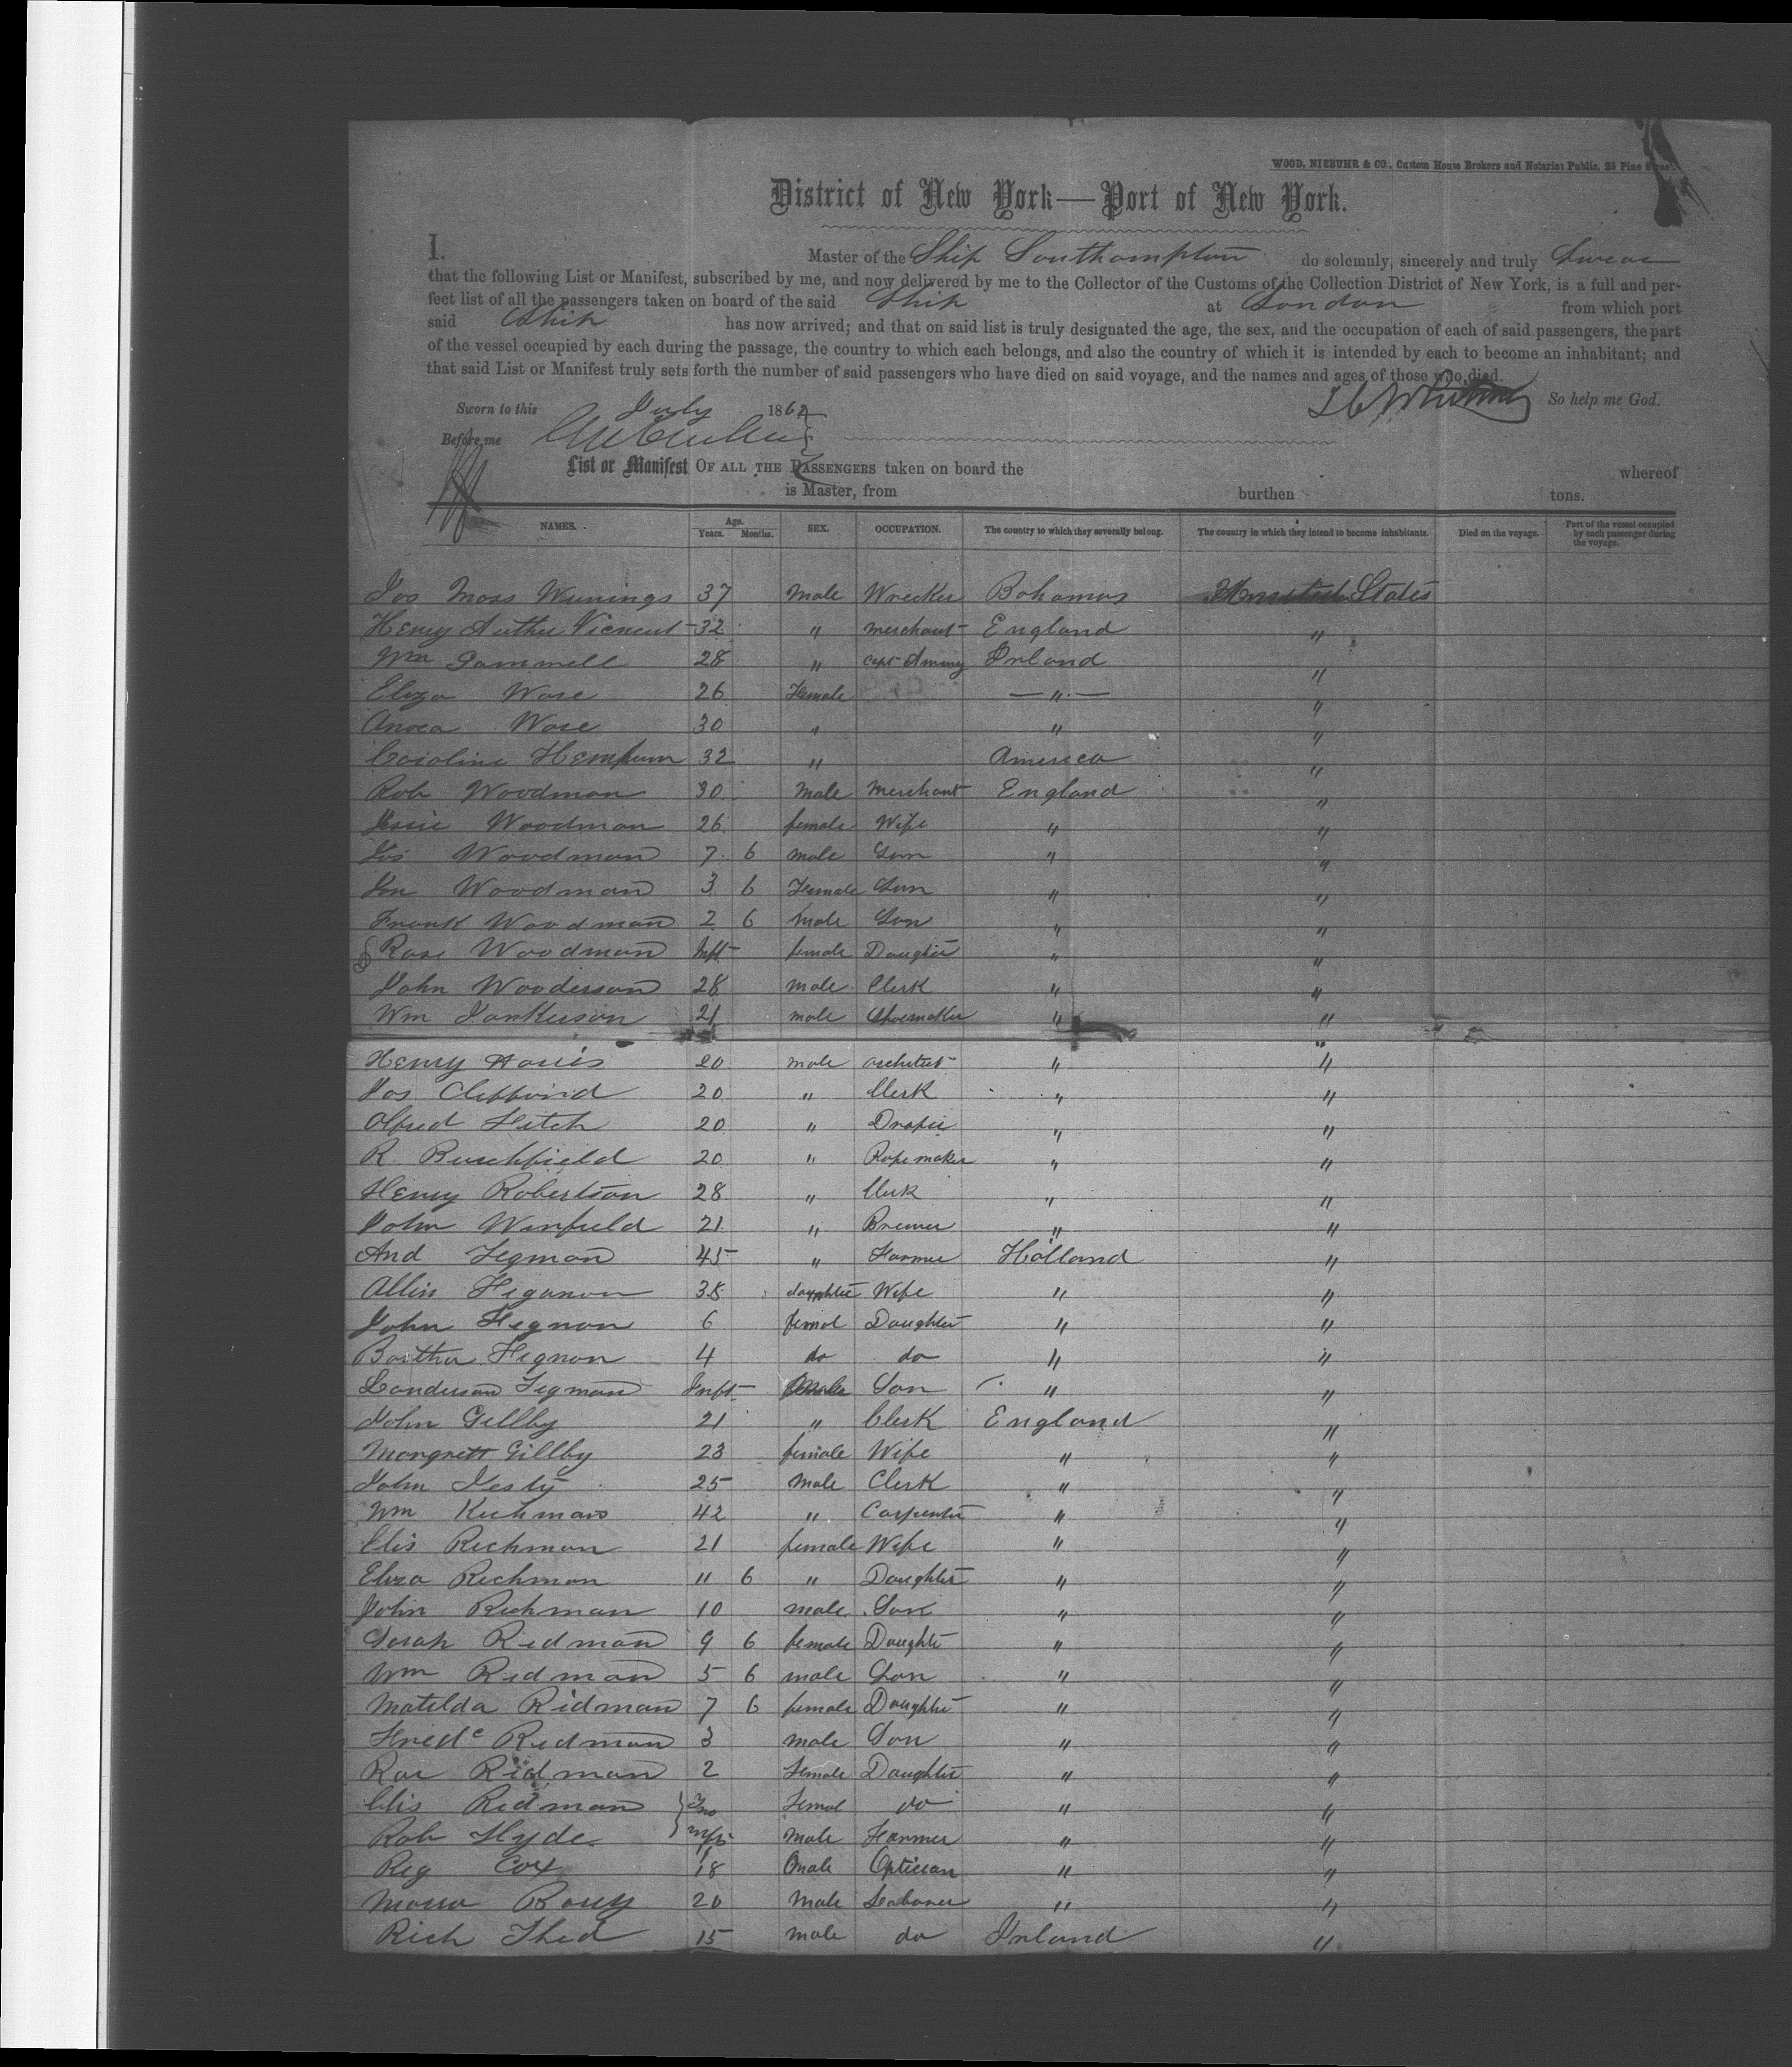 WOOD, NIEBUHR & CO., Custom House Brokers and Notaries Public, 25 Pine Street.
District of New York—Port of New York.
I. Master of the Ship Southampton do solemnly, sincerely and truly Swear
that the following List or Manifest, subscribed by me, and now delivered by me to the Collector of the Customs of the Collection District of New York, is a full and per-
fect list of all the passengers taken on board of the said Ship at London from which port
said Ship has now arrived; and that on said list is truly designated the age, the sex, and the occupation of each of said passengers, the part
of the vessel occupied by each during the passage, the country to which each belongs, and also the country of which it is intended by each to become an inhabitant; and
that said List or Manifest truly sets forth the number of said passengers who have died on said voyage, and the names and ages of those who died.
Sworn to this July 186 So help me God.
Before me
List or Manifest OF ALL THE PASSENGERS taken on board the whereof
is Master, from burthen tons.
NAMES. Age. Years. Months. SEX. OCCUPATION. The country to which they severally belong. The country in which they intend to become inhabitants. Died on the voyage. Part of the vessel occupied by each passenger during the voyage.
Jos Moss 37 male Wrecker Bahamas States
Henry Arther 32 " merchant England "
Wm Gammell 28 " Capt Ammy Irland "
Eliza Ware 26 Female — " — "
Ware 30 " " "
Caroline 32 " America "
Rob Woodman 30 Male Merchant England "
Jessie Woodman 26 female Wife " "
Jos Woodman 7 6 male Son " "
Jon Woodman 3 6 Female Son " "
Frank Woodman 2 6 Male Son " "
Rose Woodman Inft female Daughter " "
John Wooderson 28 male Clerk " "
Wm Jankerson 21 male Shoemaker " "
Henry Harris 20 male architect " "
Jos Cliffoird 20 " Clerk " "
Alfred Fitch 20 " Draper " "
R Burchfield 20 " Rope maker " "
Henry Robertson 28 " Clerk " "
John Winfield 21 " Brewer " "
And Fegman 45 " Farmer Holland "
Allin Feganon 38 daughter Wife " "
John Fegnon 6 femal Daughter " "
Bartha Fegnon 4 do do " "
Landerson Fegman Inft Son " "
John Gillby 21 " Clerk England "
Margrett Gillby 23 female Wife " "
John 25 Male Clerk " "
Wm Richman 42 " Carpenter " "
Elis Richman 21 female Wife " "
Eliza Richman 11 6 " Daughter " "
John Richman 10 male Son " "
Sarah Redman 9 6 female Daughter " "
Wm Redman 5 6 male Son " "
Matilda Ridman 7 6 female Daughter " "
Fredc Redman 3 male Son " "
Ridman 2 Female Daughter " "
Elis Redman Femal do " "
Rob Hyde male Farmer " "
Reg Cox 18 male Optician " "
20 Male Labourer " "
Rich Thed 15 male do Irland "